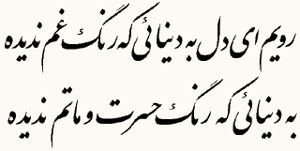 رویم ای دل به دنیائی که رنگ غم ندیده
به دنیائی که رنگ حسرت و ماتم ندیده